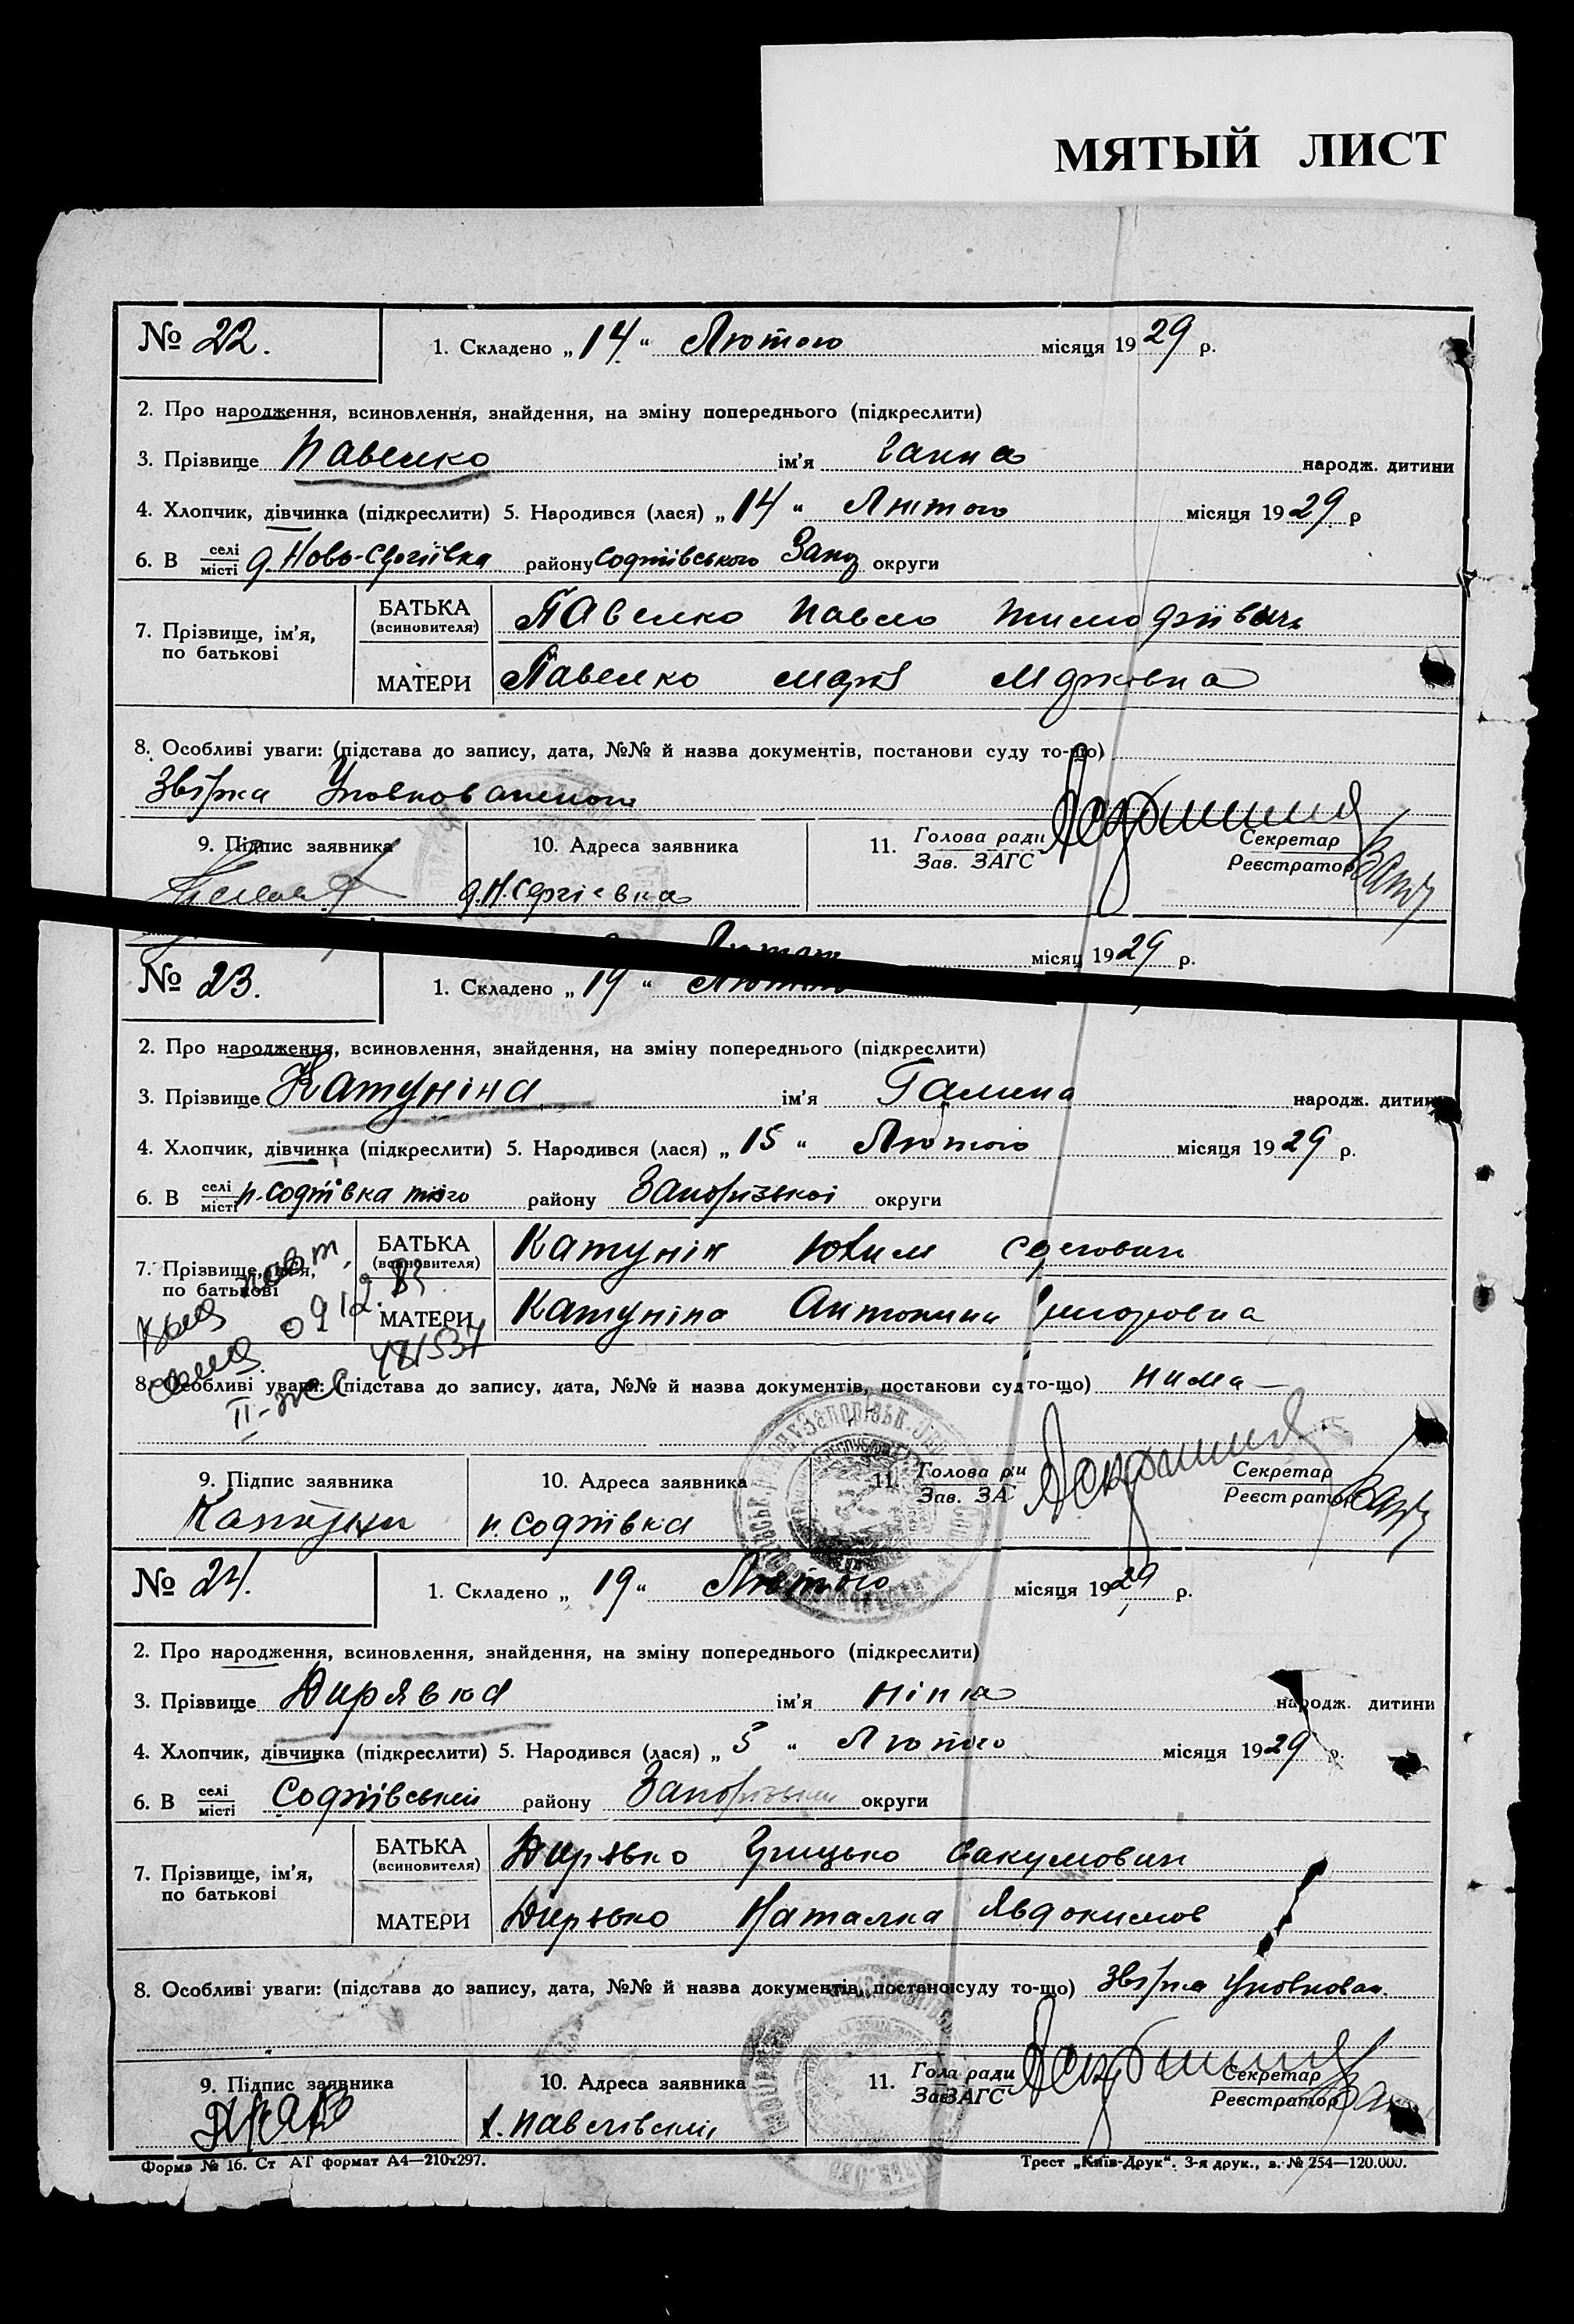 МЯТЫЙ ЛИСТ
№ 22.
1. Складено „ 14 “ Лютого місяця 1929 р.
2. Про народження, всиновлення, знайдення, на зміну попереднього (підкреслити)
3. Прізвище Павелко ім'я Ганна народж. дитини
4. Хлопчик, дівчинка (підкреслити) 5. Народився (лася) „ 14 “ Лютого місяця 1929 р
6. В селі місті Ново-Сергіївка району Софіївського Запоз округи
7. Прізвище, ім'я, по батькові
БАТЬКА (всиновителя) Павелко Павло Тимофіївичь
МАТЕРИ Павелко Марія Марковна
8. Особливі уваги: (підстава до запису, дата, №№ й назва документів, постанови суду то-що)
Звірка Уповноваженого
9. Підпис заявника
10. Адреса заявника
11. Голова ради Зав. ЗАГС
Секретар Реєстратор
д.Н.Сергіевка
Лютого місяц 1929 р.
№ 23.
1. Складено „ 19 “ Лютого
2. Про народження, всиновлення, знайдення, на зміну попереднього (підкреслити)
3. Прізвище Катуніна ім'я Галина народж. дитин
4. Хлопчик, дівчинка (підкреслити) 5. Народився (лася) „ 15 “ Лютого місяця 1929 р.
6. В селі місті н. Софіївка того району Запорізької округи
7. Прізвище, ім'я, по батькові
БАТЬКА (всиновителя) Катунін Юхим
МАТЕРИ Катуніна Антонина Григоровна
повт. 09 12. 83
II-жс 421537
8. Особливі уваги: (підстава до запису, дата, №№ й назва документів, постанови суд то-що) нима
9. Підпис заявника
10. Адреса заявника
11. Голова ри Зав. ЗА
Секретар Реєстратор
н. Софіівка
№ 24.
1. Складено „ 19 “ Лютого місяця 1929 р.
2. Про народження, всиновлення, знайдення, на зміну попереднього (підкреслити)
3. Прізвище Дирявка ім'я Ніна народж. дитини
4. Хлопчик, дівчинка (підкреслити) 5. Народився (лася) „ 5 “ Лютого місяця 1929 р.
6. В селі місті Софіївській району Запорізьки округи
7. Прізвище, ім'я, по батькові
БАТЬКА (всиновителя) Дирявко Грицько Вакумович
МАТЕРИ Дирявко Наталка Явдокимов
8. Особливі уваги: (підстава до запису, дата, №№ й назва документів, постано суду то-що) Звірка Уповноваж.
9. Підпис заявника
10. Адреса заявника
11. Гола ради Зав ЗАГС
Секретар Реєстратор
х. Павлівский
Форма № 16. Ст АТ формат А4—210х297.
Трест „Київ-Друк“. 3-я друк., з. № 254—120.000.